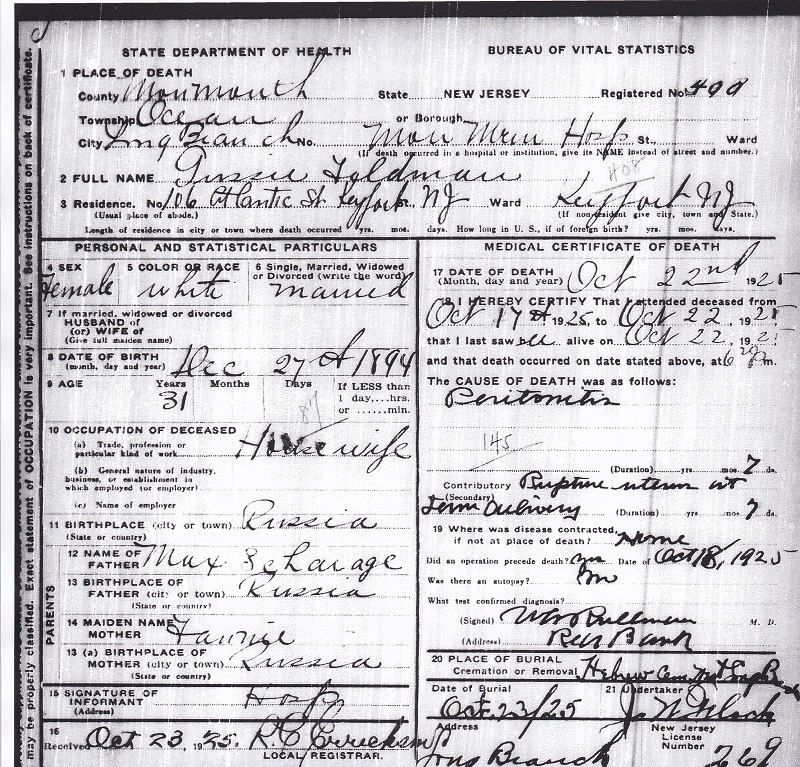 STATE DEPARTMENT OF HEALTH
BUREAU OF VITAL STATISTICS
1 PLACE OF DEATH
County Monmouth State NEW JERSEY Registered No. 498
Township Ocean or Borough
City Long Branch No. Mon Mem Hosp St., Ward
(If death occurred in a hospital or institution, give its NAME instead of street and number.)
408
2 FULL NAME Feldman
3 Residence. No. 106 Atlantic St Keyport, NJ Ward Keyport NJ
(Usual place of abode,) (If nonresident give city, town and State.)
Length of residence in city or town where death occurred yrs. mos. days. How long in U. S., if of foreign birth? yrs. mos. days.
PERSONAL AND STATISTICAL PARTICULARS
4 SEX 5 COLOR OR RACE 6 Single, Married, Widowed
or Divorced (write the word)
Female white married
7 If married, widowed or divorced
HUSBAND of
(or) WIFE of
(Give full maiden name)
8 DATE OF BIRTH
(month, day and year) Dec 27th 1894
9 AGE Years Months Days If LESS than
31 1 day,...hrs.
or ......min.
87
10 OCCUPATION OF DECEASED
(a) Trade, profession or
particular kind of work House wife
(b) General nature of industry,
business, or establishment in
which employed (or employer)
(c) Name of employer
11 BIRTHPLACE (city or town) Russia
(State or country)
PARENTS
12 NAME OF
FATHER Max Scharage
13 BIRTHPLACE OF
FATHER (city or town) Russia
(State or country)
14 MAIDEN NAME
MOTHER Fannie
13 (a) BIRTHPLACE OF
MOTHER (city or town) Russia
(State or country)
15 SIGNATURE OF
INFORMANT Hosp
(Address)
16
Received Oct 23, 1925.
LOCAL REGISTRAR.
MEDICAL CERTIFICATE OF DEATH
17 DATE OF DEATH
(Month, day and year) Oct 22nd 1925
18 I HEREBY CERTIFY That I attended deceased from
Oct 17th 1925, to Oct 22, 1925
that I last saw alive on Oct 22, 192
and that death occurred on date stated above, at 6 m.
The CAUSE OF DEATH was as follows:
Peritonitis
145
(Duration) yrs. mos. 7 ds.
Contributory Rupture
(Secondary)
(Duration) yrs mos 7 ds.
19 Where was disease contracted,
if not at place of death? Home
Did an operation precede death? yes Date of Oct 18, 1925
Was there an autopsy?
What test confirmed diagnosis?
(Signed) M. D.
(Address) Red Bank
20 PLACE OF BURIAL
Cremation or Removal Hebrew Cem
Date of Burial 21 Undertaker
Oct. 23/25
Address New Jersey
License
Number 269
Long Branch
may be properly classified. Exact statement of OCCUPATION is very important. See instructions on back of certificate.